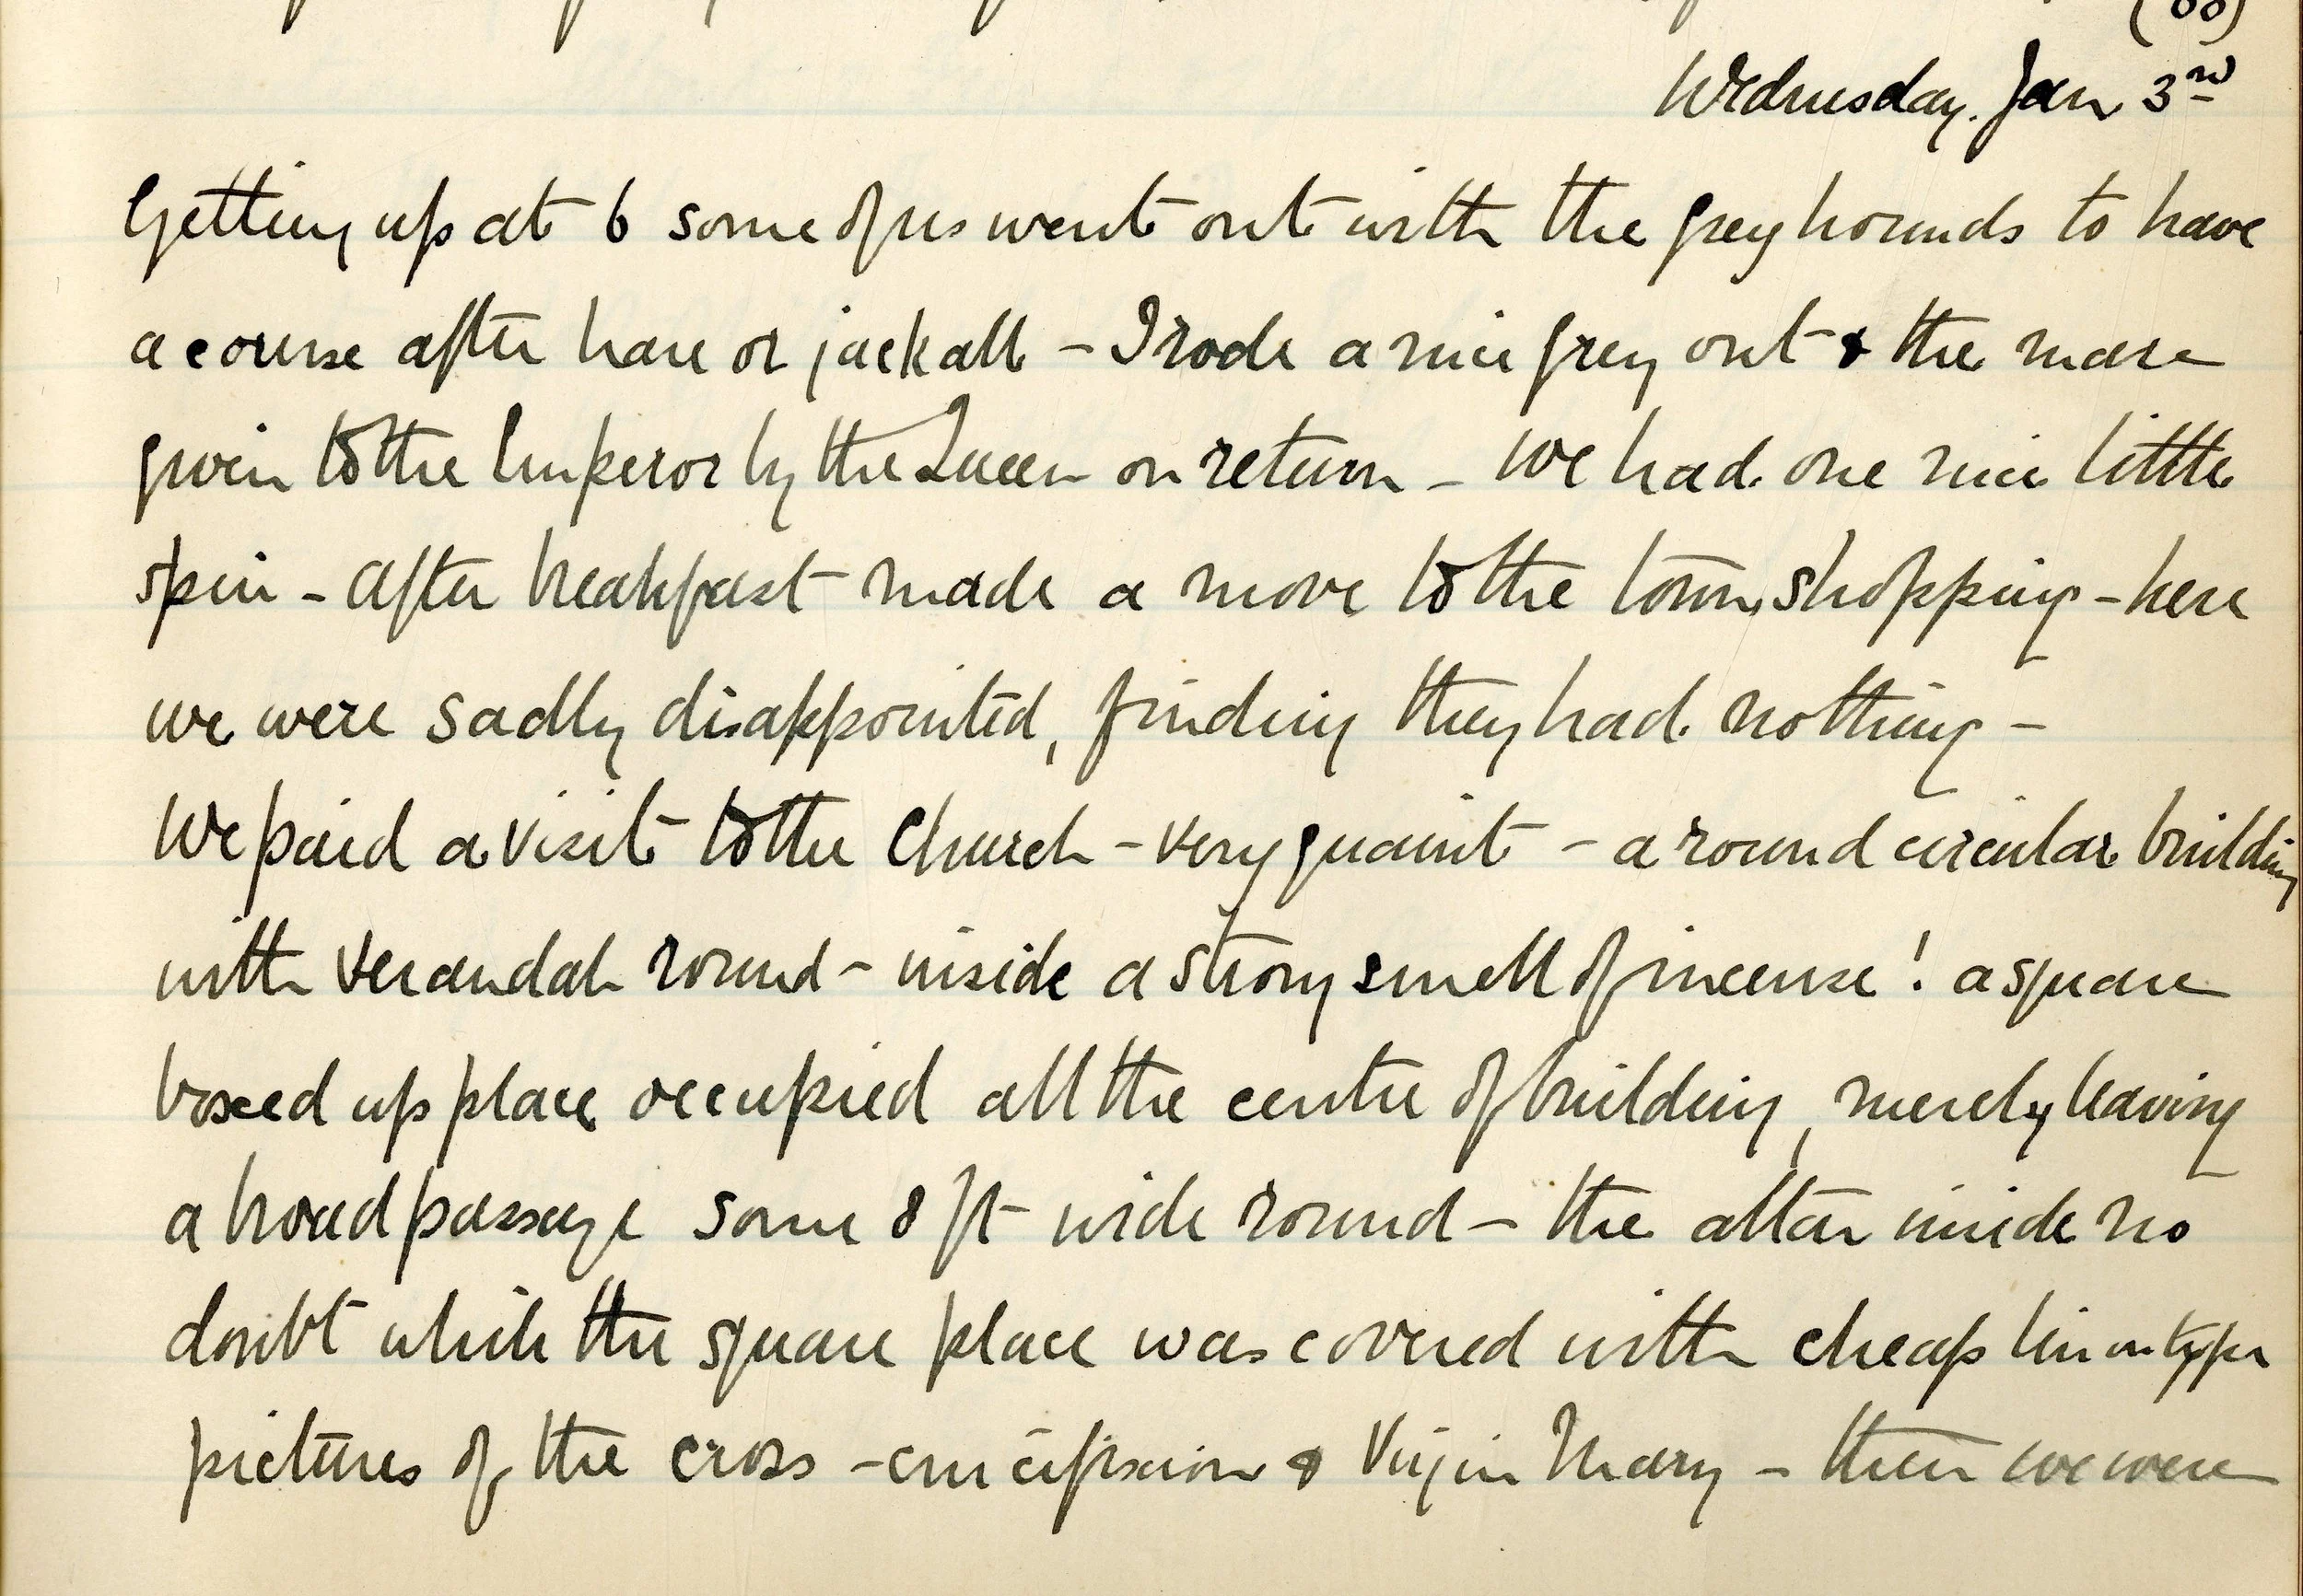 (00)
Wednesday. Jan 3rd
Getting up at 6 some of us went out with the greyhounds to have
a course after hare or jackall - I rode a nice grey out & the mare
given to the Emperor by the Queen on return - We had one nice little
spin - after breakfast made a move to the town, shopping - here
we were sadly disappointed, finding they had nothing -
We paid a visit to the Church - very quaint - a round circular building
with verandah round - inside a strong smell of incense! a square
boxed up place occupied all the centre of building, merely leaving
a broad passage some 8 ft wide round - the altar inside no
doubt while the square place was covered with cheap
pictures of the cross - crucifixion & Virgin Mary - then we were